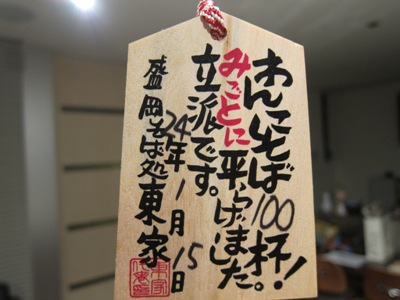 わんこそば100杯！
みごとに平らげました。
立派です。
24年1月15日
盛岡そば処東家